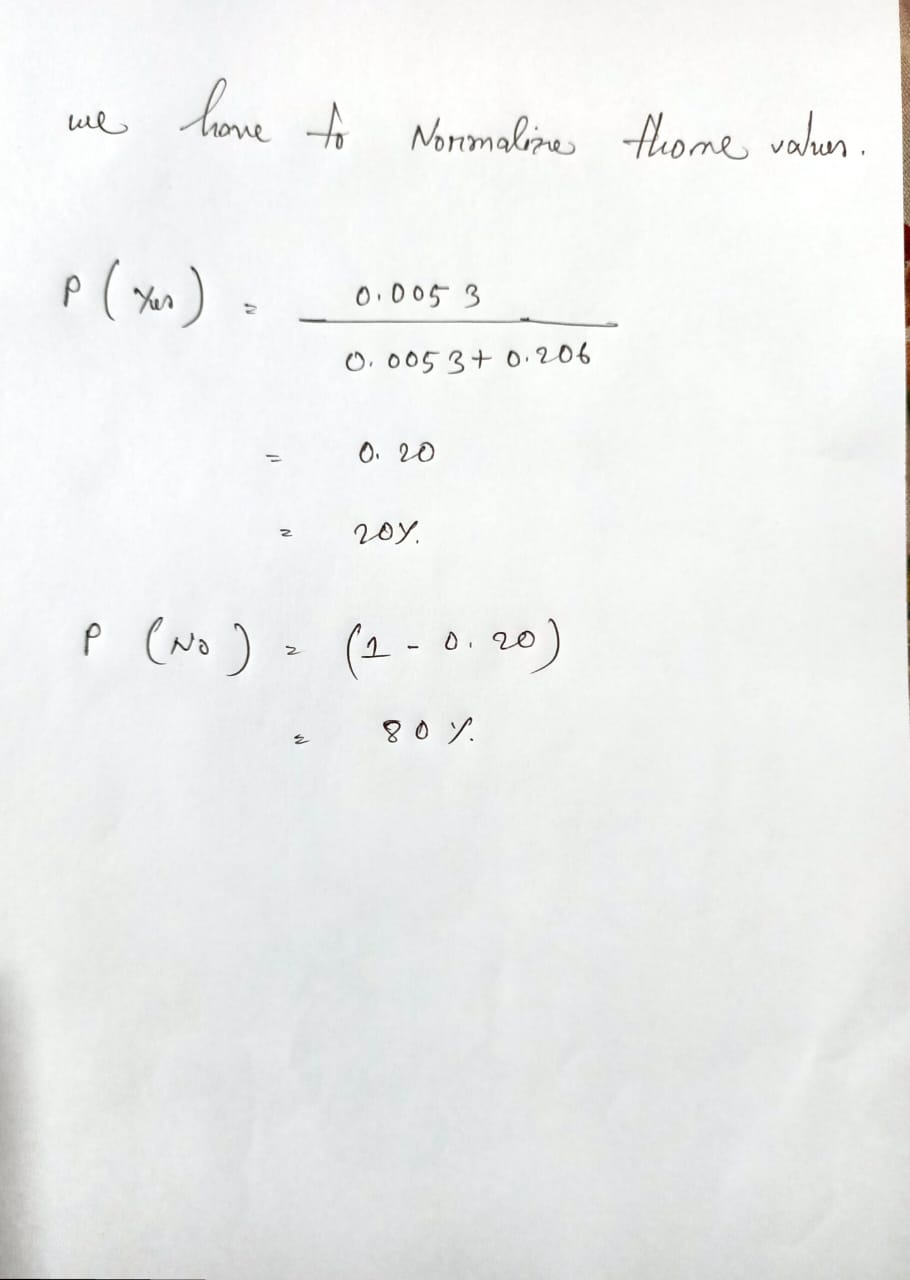 we have to Normalize those values.
P (Yes) = 0.0053
0.0053 + 0.206
= 0.20
= 20%
P (No) = (1 - 0.20)
= 80%